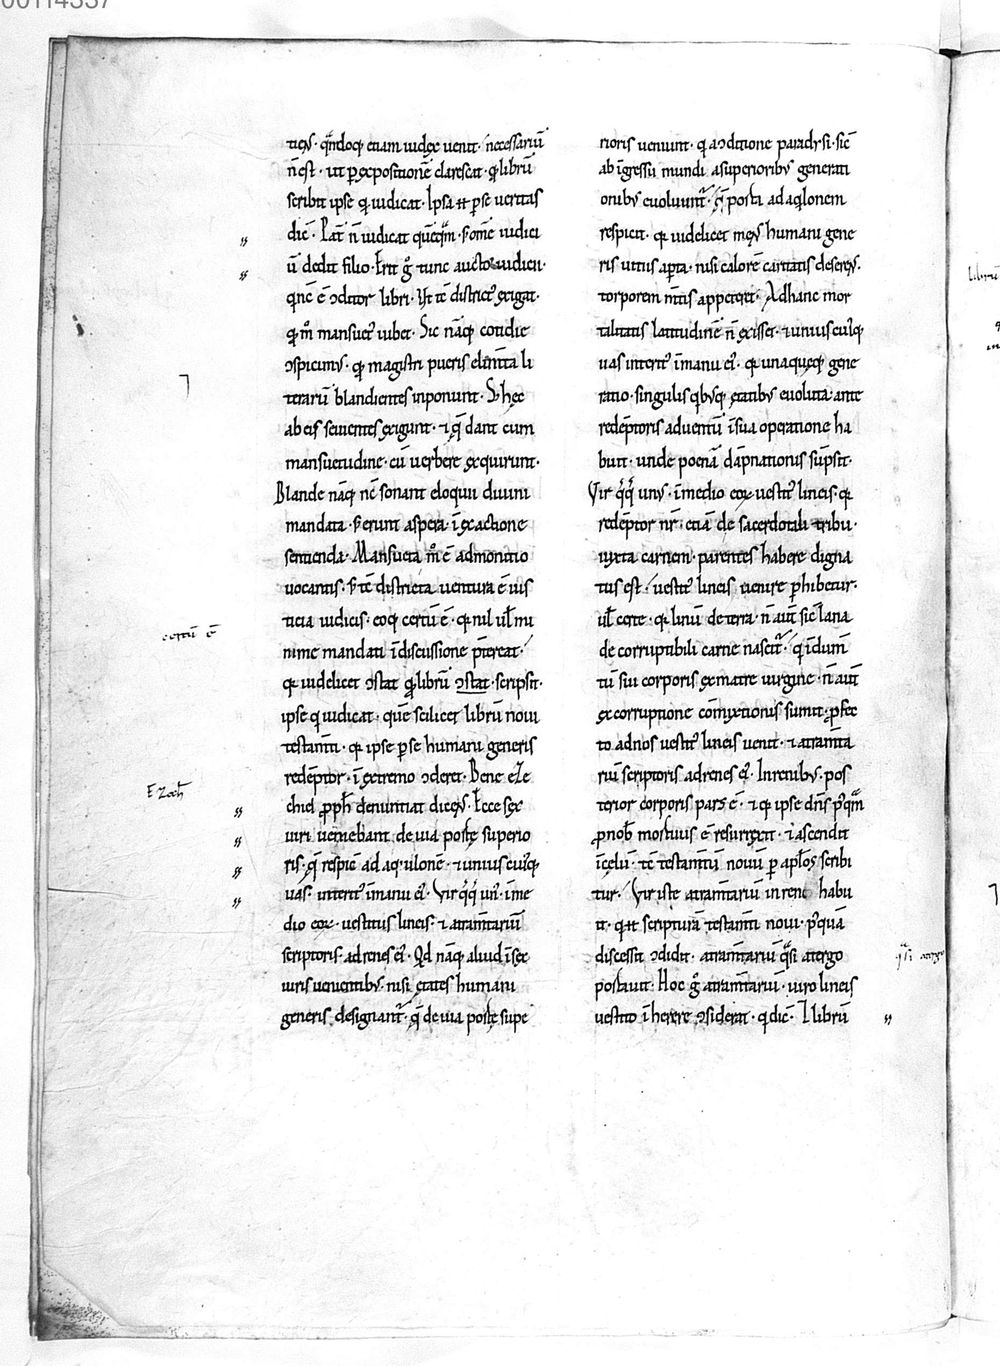 00114337
tiens. qn̄doq; etiam iudex uenit. necessariū
n̄ est. ut p expositionē clarescat. q librū
scribit ipse qi iudicat. Ipsa &t p se ueritas
dic̄. Pat̄ n̄ iudicat quēq̄m. s; om̄e iudici
ū dedit filio. Erit g̊ tunc auctor iudicii.
qi nc̄ ē ɔditor libri. Vt tc̄ districtꝰ exigat.
qi m̊ mansuetꝰ iubet. Sic nāq; cotidie
ɔspicimꝰ. qi magistri pueris elem̄ta li
terarū blandientes inponunt. S; hęc
ab eis seuientes exigunt. & q̨ dant cum
mansuetudine. cū uerbere exquirunt.
Blande nāq; nc̄ sonant eloquii diuini
mandata. s; erunt aspera. ī exactione
sentienda. Mansueta m̊ ē admonitio
uocantis. s; tc̄ districta uentura ē ius
ticia iudicis. eoq; certū ē. qi nil ul̄ mi
nime mandati īdiscussione p̄tereat.
qi uidelicet ɔstat q librū ɔstat. scripsit.
ipse qi iudicat. quē scilicet librū noui
testam̄ti. qi ipse p se humani generis
redēptor. ī extremo ɔderet. Bene eze
chiel pph̄ denuntiat dicens. Ecce sex
uiri ueniebant. de uia portę superio
ris. q̨ respic̄ ad aq'uilonē. & uniuscuiusq;
uas. interitꝰ īmanu ei. Vir q̊q; unꝰ. ī me
dio eoꝝ. uestitus lineis. & atram̄tariū
scriptoris. ad renes ei. Qd nāq; aliud ī sex
uiris uenientibꝰ. nisi ętates humani
generis designant̄. q̨ de uia portę supe
rioris ueniunt. qi a ɔditione paradysi. sic̄
ab īgressu mundi a superioribꝰ generati
onibꝰ euoluunt̄. q̨ porta ad aq'lonem
respicit. qi uidelicet mens humani gene
ris uitiis apta. nisi calorē caritatis deserens.
torporem mtis appeteret. Ad hanc mor
talitatis latitudinē n̄ exisset. & uniuscuiusq;
uas interitꝰ īmanu eiꝰ. qi unaquęq; gene
ratio. singulis qibusq; ętatibꝰ euoluta. ante
redēptoris aduentū ī sua operatione ha
buit. unde poenā dāpnationis sūpsit.
Vir q̊q; unꝰ. ī medio eoꝝ uestitꝰ lineis. qi
redēptor nr̄. etiā de sacerdotali tribu.
iuxta carnem. parentes habere digna
tus est. uestitꝰ lineis uenire phibetur.
ul̄ certe. qi linū de terra. n̄ aūt sic̄ lana
de corruptibili carne nascit̄. qi īdum̄
tū sui corporis ex matre uirgine. n̄ aūt
ex corruptione cōmixtionis sumit. pfec
to ad nos uestitꝰ lineis uenit. & atram̄ta
riū scriptoris ad renes eiꝰ. In renibꝰ. pos
terior corporis pars ē. & qi ipse dn̄s p'q̄m
p nob̄ mortuus ē resurrexit. & ascendit
ī cęlū. tc̄ testam̄tū nouū p aplōs scribi
tur. Vir iste atram̄tariū in rene habu
it. qi &t scripturā testam̄ti noui. p'quā
discessit ɔdidit. atram̄tariū q̄si a tergo
portauit. Hoc g̊ atram̄tariū. uiro lineis
uestito ī herere ɔsiderat. qi dic̄. & librū
certū ē
Ezech̄
q̄si a tergo
librū